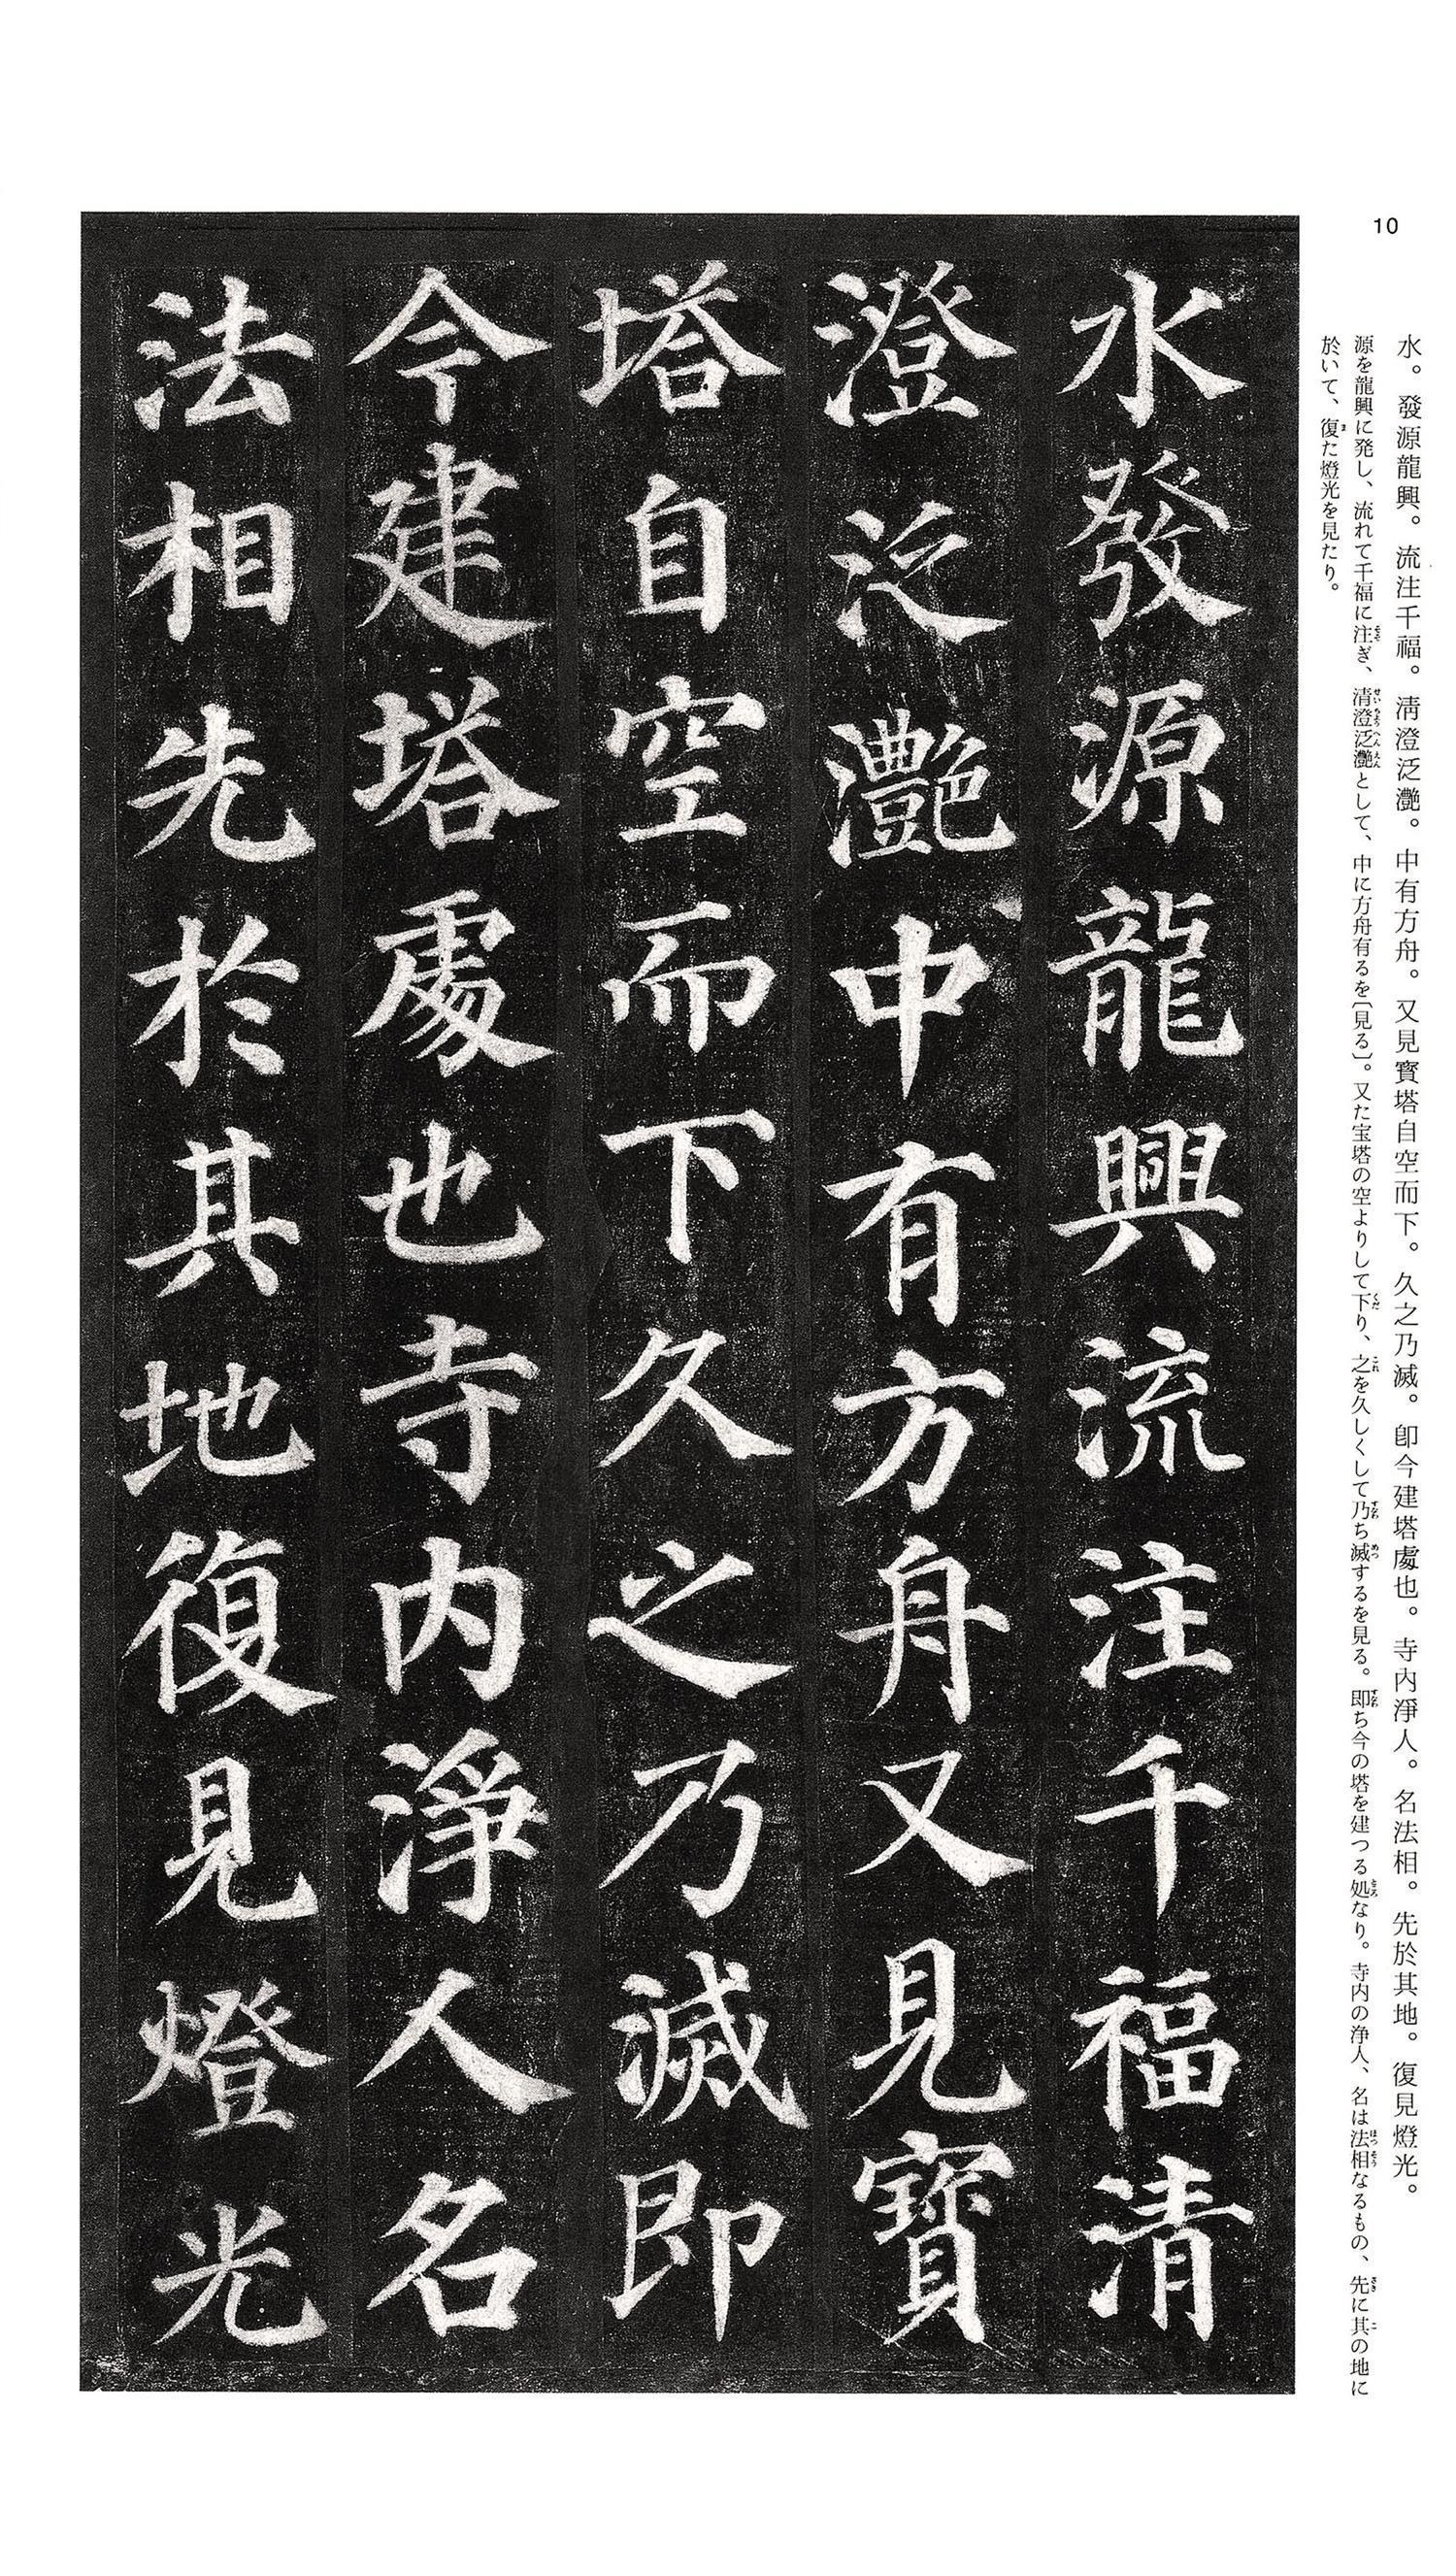 10
水。發源龍興。流注千福。淸澄泛灔。中有方舟。又見寶塔自空而下。久之乃滅。卽今建塔處也。寺内淨人。名法相。先於其地。復見燈光。
源を龍興に発し、流れて千福に注ぎ、清澄泛灔として、中に方舟有るを〔見る〕。又た宝塔の空よりして下り、之を久しくして乃ち滅するを見る。即ち今の塔を建つる処なり。寺内の浄人、名は法相なるもの、先に其の地に
於いて、復た燈光を見たり。
水發源龍興流注千福清
澄泛灔中有方舟又見寶
塔自空而下久之乃滅即
今建塔處也寺内淨人名
法相先於其地復見燈光